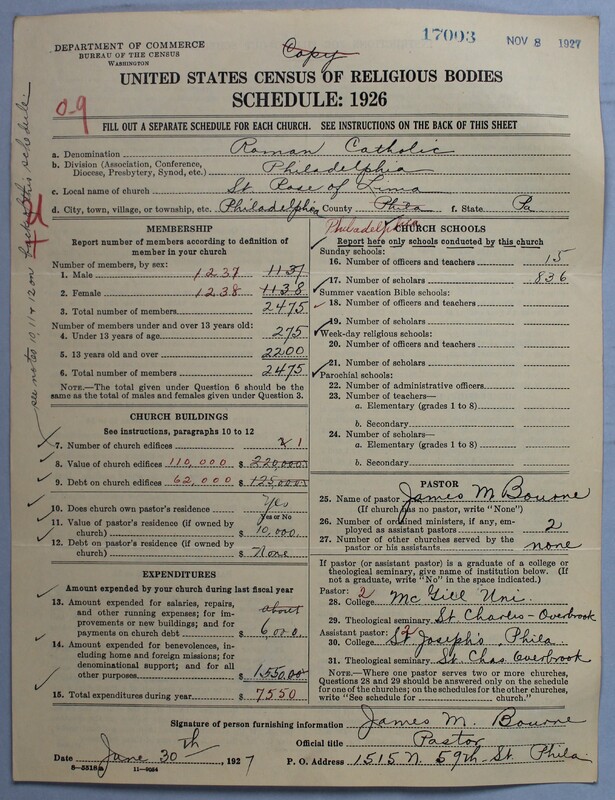 17003 NOV 8 1927
Copy
DEPARTMENT OF COMMERCE
BUREAU OF THE CENSUS
WASHINGTON
UNITED STATES CENSUS OF RELIGIOUS BODIES
SCHEDULE: 1926
0-9
FILL OUT A SEPARATE SCHEDULE FOR EACH CHURCH. SEE INSTRUCTIONS ON THE BACK OF THIS SHEET
a. Denomination Roman Catholic
b. Division (Association, Conference, Diocese, Presbytery, Synod, etc.) Philadelphia
c. Local name of church St Rose of Lima
d. City, town, village, or township, etc. Philadelphia County Phila f. State Pa
Philadelphia
see notes 10, 11 & 12 on back of this schedule
MEMBERSHIP
Report number of members according to definition of
member in your church
Number of members, by sex:
1. Male 1237 1137
2. Female 1238 1138
3. Total number of members 2475
Number of members under and over 13 years old:
4. Under 13 years of age 275
5. 13 years old and over 2200
6. Total number of members 2475
NOTE.—The total given under Question 6 should be
the same as the total of males and females given under Question 3.
CHURCH BUILDINGS
See instructions, paragraphs 10 to 12
7. Number of church edifices 1
8. Value of church edifices 110,000 $ 220,000
9. Debt on church edifices 62,000 $ 125,000
10. Does church own pastor's residence? Yes
Yes or No
11. Value of pastor's residence (if owned by
church) $ 10,000
12. Debt on pastor's residence (if owned by
church) $ None
EXPENDITURES
Amount expended by your church during last fiscal year
13. Amount expended for salaries, repairs,
and other running expenses; for im-
provements or new buildings; and for
payments on church debt about $ 6000
14. Amount expended for benevolences,
including home and foreign missions; for
denominational support; and for all
other purposes $ 1,550.00
15. Total expenditures during year $ 7550
CHURCH SCHOOLS
Report here only schools conducted by this church
Sunday schools:
16. Number of officers and teachers 15
17. Number of scholars 836
Summer vacation Bible schools:
18. Number of officers and teachers
19. Number of scholars
Week-day religious schools:
20. Number of officers and teachers
21. Number of scholars
Parochial schools:
22. Number of administrative officers
23. Number of teachers—
a. Elementary (grades 1 to 8)
b. Secondary
24. Number of scholars—
a. Elementary (grades 1 to 8)
b. Secondary
PASTOR
25. Name of pastor James M Bourne
(If church has no pastor, write "None")
26. Number of ordained ministers, if any, em-
ployed as assistant pastors 2
27. Number of other churches served by the
pastor or his assistants none
If pastor (or assistant pastor) is a graduate of a college or
theological seminary, give name of institution below. (If
not a graduate, write "No" in the space indicated.)
Pastor: 2
28. College Mc Gill Uni.
29. Theological seminary St Charles - Overbrook
Assistant pastor: 2
30. College St Joseph's, Phila
31. Theological seminary St Chas Overbrook
NOTE.—Where one pastor serves two or more churches,
Questions 28 and 29 should be answered only on the schedule
for one of the churches; on the schedules for the other churches,
write "See schedule for church."
Signature of person furnishing information James M. Bourne
Official title Pastor
Date June 30th, 1927 P. O. Address 1515 N. 59th St. Phila
8—5518a 11—9054